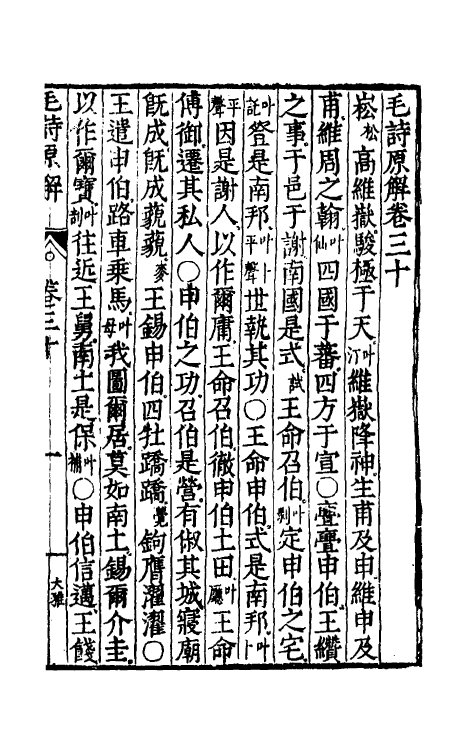 毛詩原解卷三十
崧松高維嶽駿極于天叶汀維嶽降神生甫及申維申及
甫維周之翰叶仙四國于蕃四方于宣〇亹亹申伯王纘
之事于邑于謝南國是式試王命召伯叶剝定申伯之宅
叶託登是南邦叶卜平聲世執其功〇王命申伯式是南邦叶卜
平聲因是謝人以作爾庸王命召伯徹申伯土田叶廳王命
傅御遷其私人〇申伯之功召伯是營有俶其城寢廟
旣成旣成藐藐麥王錫申伯四牡蹻蹻覺鉤膺濯濯〇
王遣申伯路車乘馬叶母我圖爾居莫如南土錫爾介圭
以作爾寶叶剖往近王舅南土是保叶補〇申伯信邁王餞
毛詩原解 卷三十 一 大雅